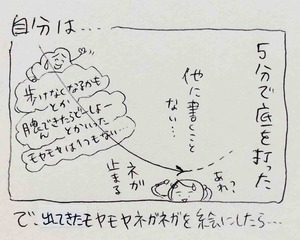 自分は…
5分で底を打った
他に書くこと
ない…
歩けなくなるかも
とか
膿んできたらどーしよー
とかいった
モヤモヤはつもない…
あれ?
ネガ
止まる
で、出てきたモヤモヤネガネガを絵にしたら…